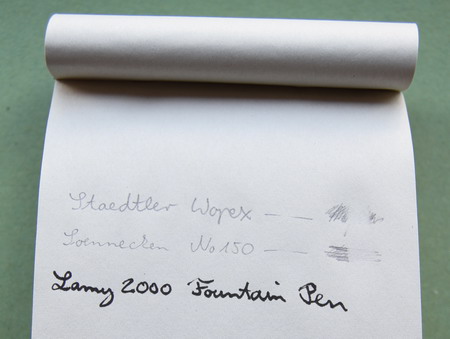 Staedtler Wopex – –
Soennecken No 150 – –
Lamy 2000 Fountain Pen